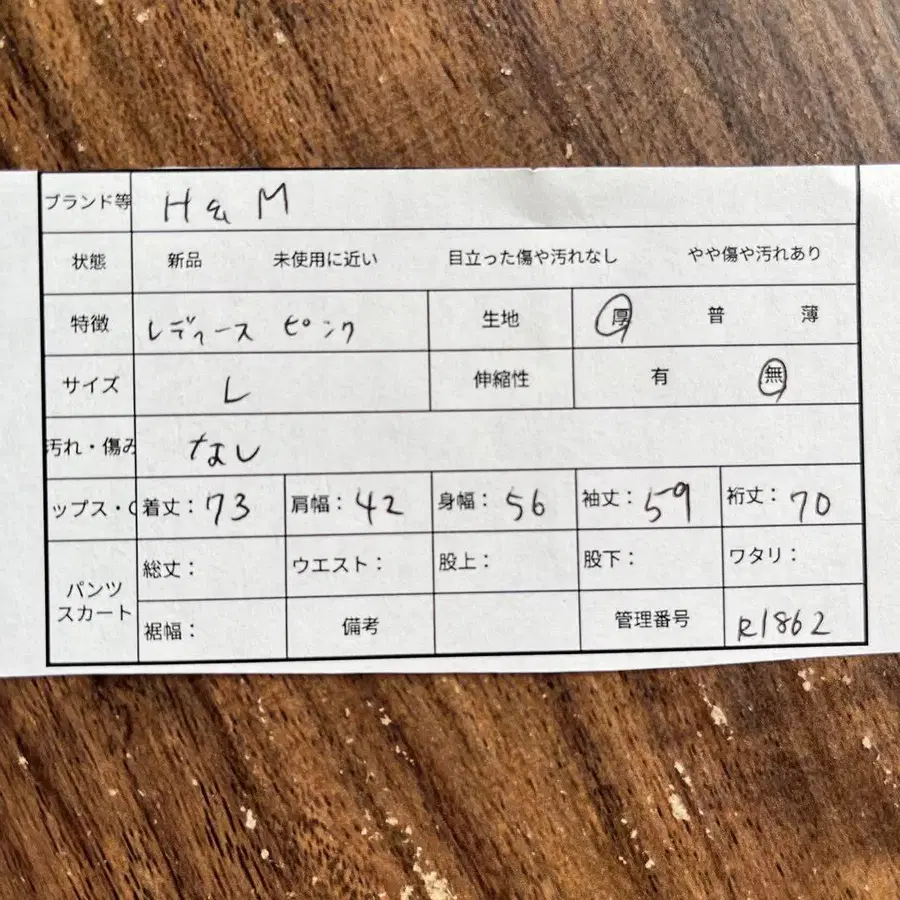 ブランド等 H & M
状態 新品 未使用に近い 目立った傷や汚れなし やや傷や汚れあり
特徴 レディース ピンク 生地 厚 普 薄
サイズ L 伸縮性 有 無
汚れ・傷み なし
ップス・ 着丈：73 肩幅：42 身幅：56 袖丈：59 裄丈：70
パンツ
スカート
総丈： ウエスト： 股上： 股下： ワタリ：
裾幅： 備考 管理番号 R1862